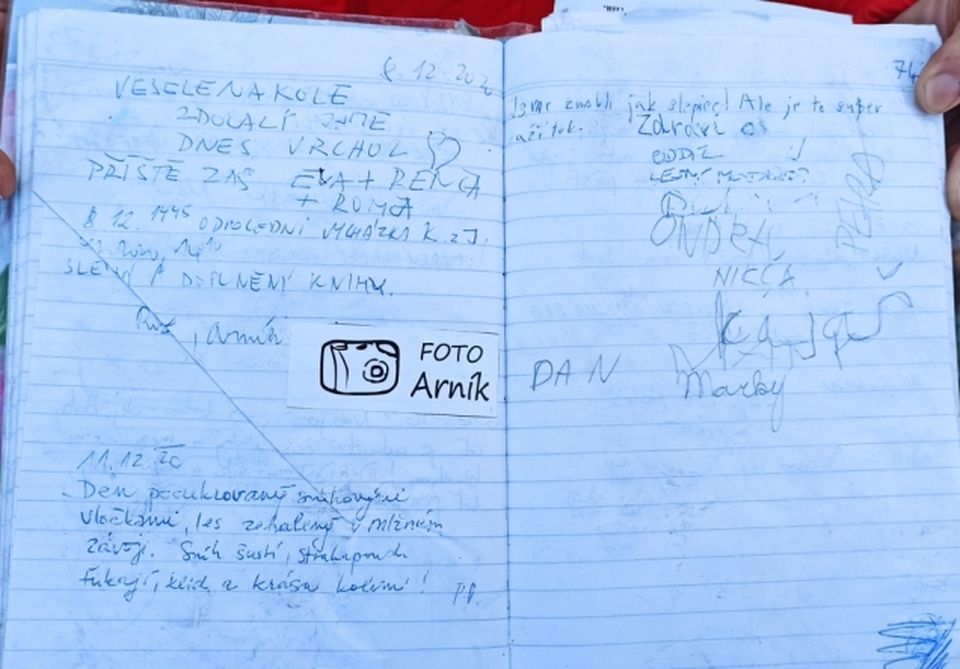 8.12.202
VESELE NA KOLE
ZDOLALI JSME
DNES VRCHOL
PŘÍŠTĚ ZAS EVA + RENČA
+ ROMČA
8.12. 1445 ODPOLEDNÍ VYCHÁZKA K. z J.
SLENÍ A DOPLNĚNÍ KNIHY.
, Arník
FOTO
Arník
11.12.20
Den pocukrovaný sněhovými
vločkami, les zahalený v mlžném
závoji. Sníh šustí,
fukají, klid a krása kolem! P.P.
74
Jsme zmokli jak slepice! Ale je to super
zážitek. Zdraví
ODDÍL
LESNÍ
PÉŤA
ONDRA
NICČA
Kajda
DAN
Marky